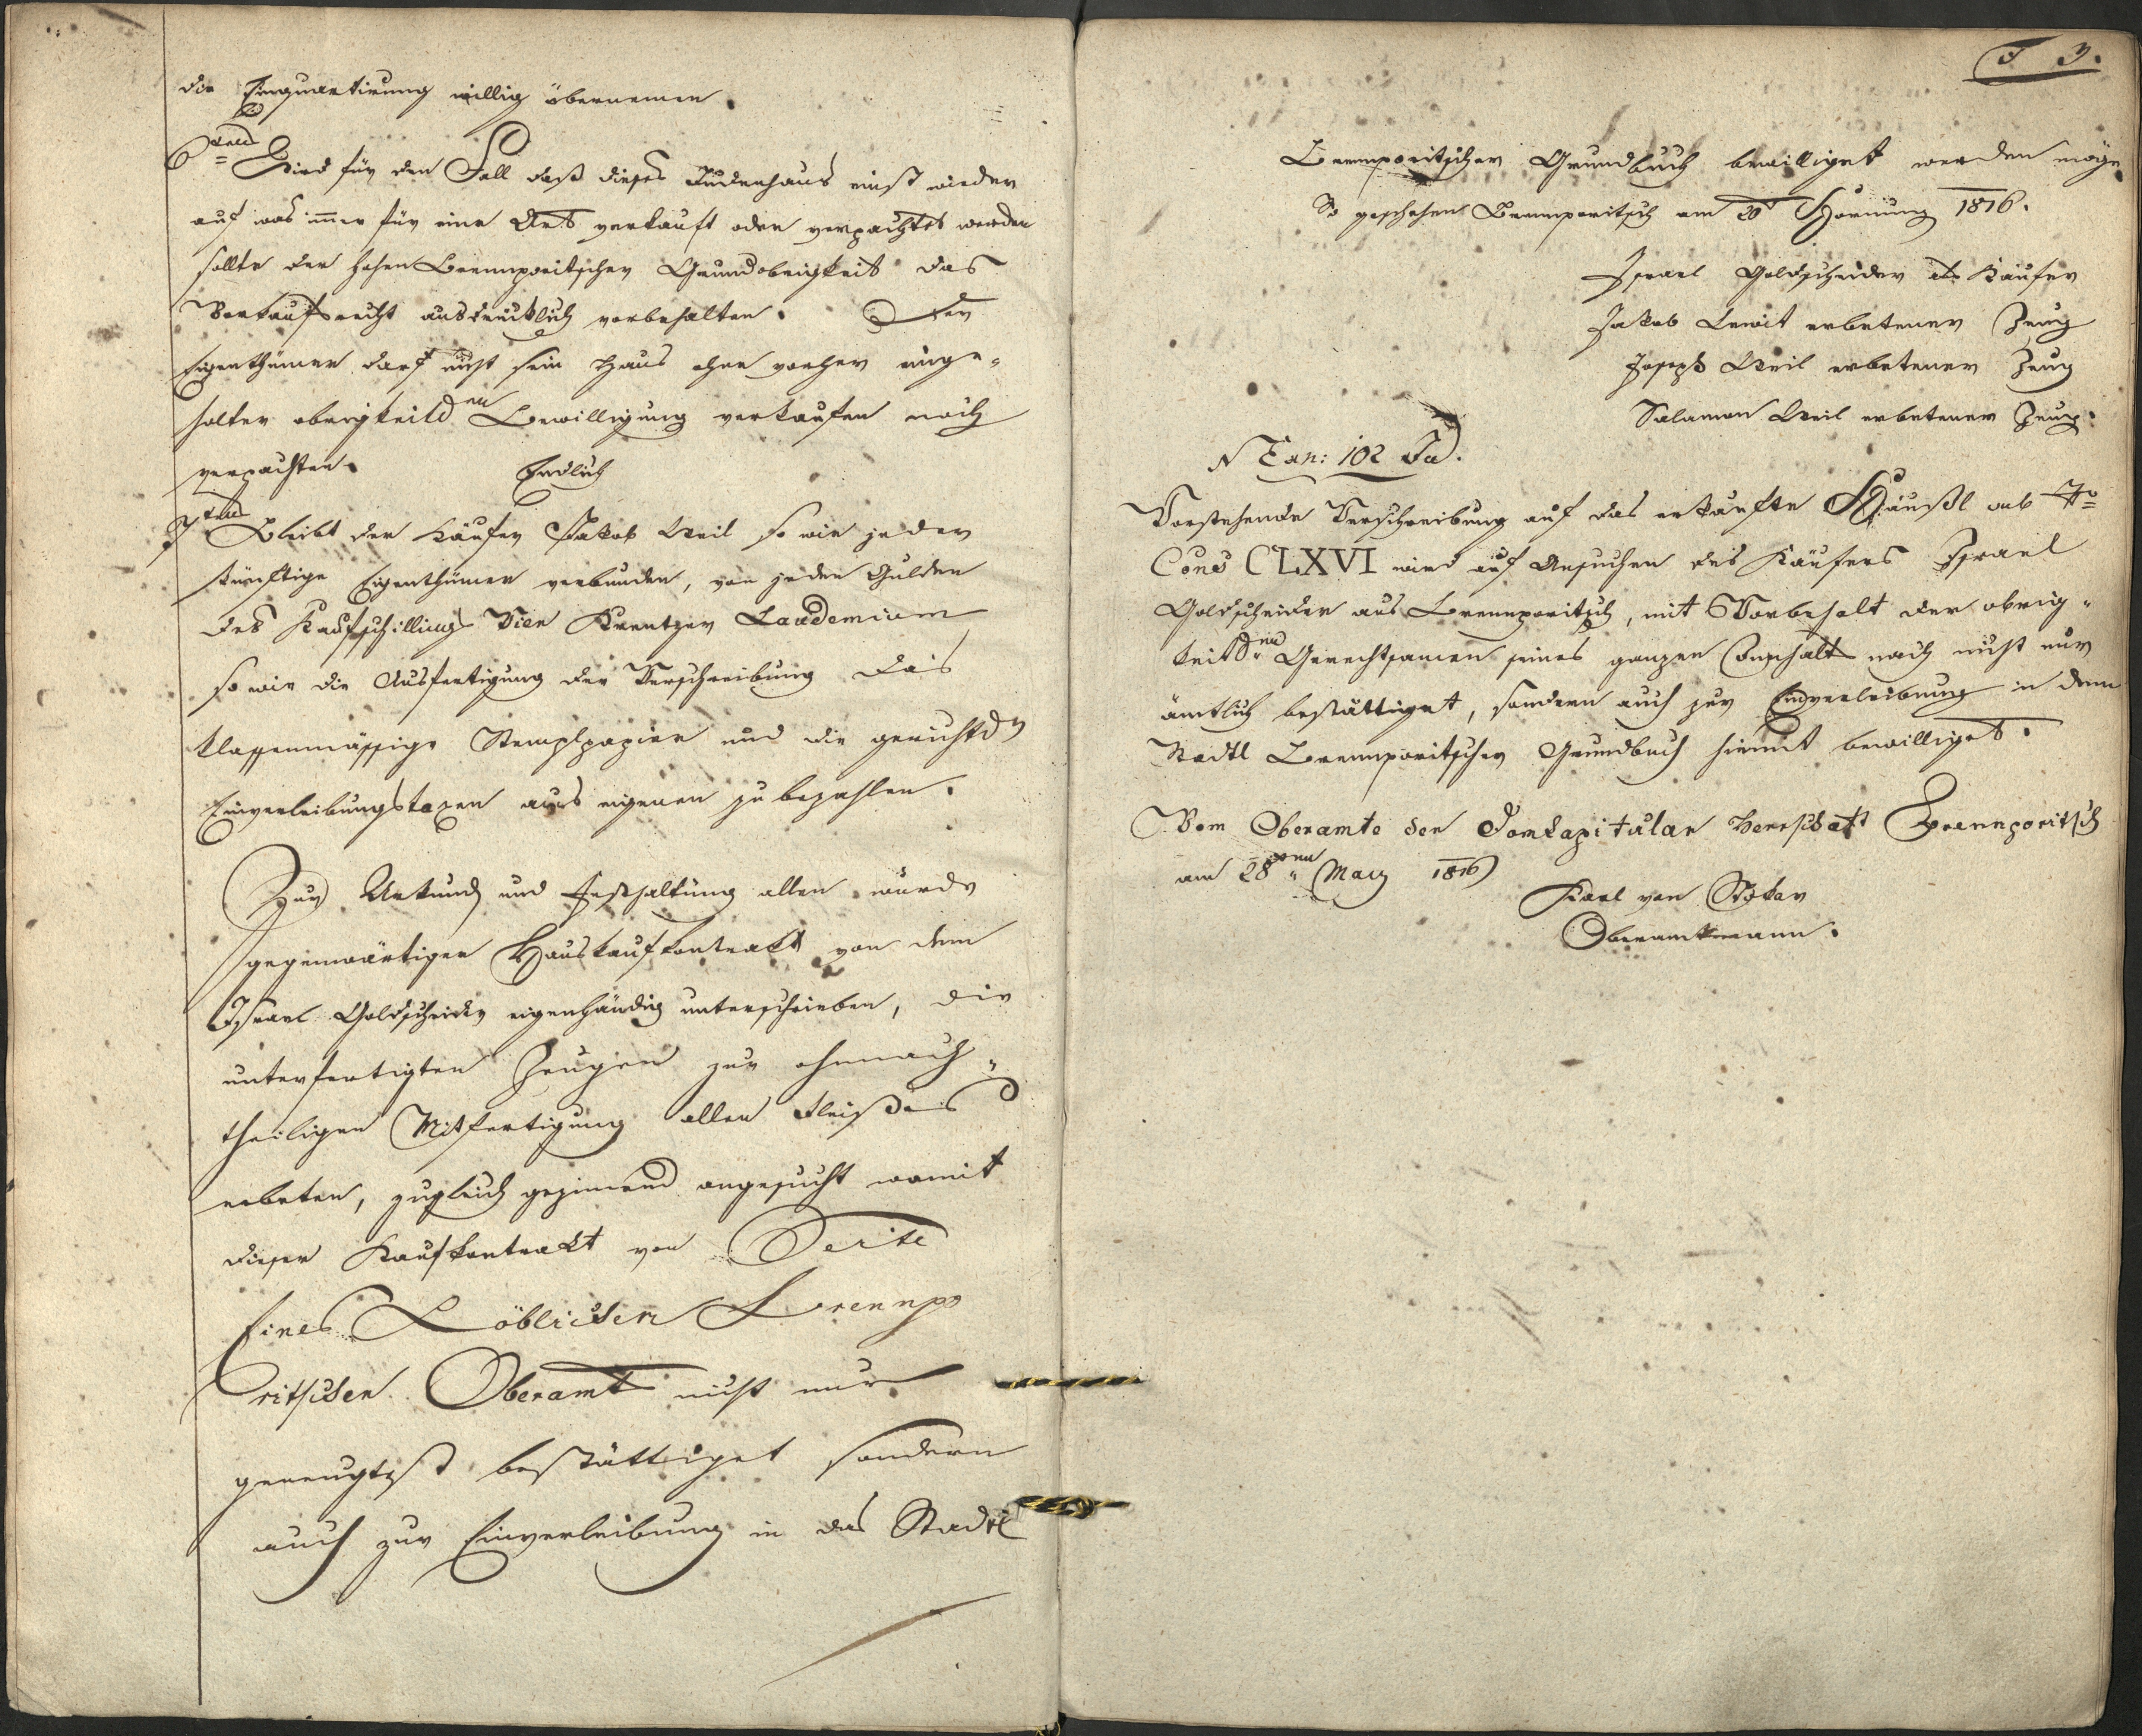 die Einquartirung willig übernemen.
6tens Wird für den Fall daß dieses Judenhaus einst wieder
auf was immer für eine Art verkauft oder verpachtet werden
sollte der hohen Brennporitscher Grundobrigkeit das
Vorkaufsrecht ausdrücklich vorbehalten. Der
Eigenthümer darf nicht sein Haus ohne vorher einge-
holter obrigkeitl.en Bewilligung verkaufen noch
verpachten. Endlich
7tens Bleibt der Käufer Jakob Weil so wie jeder
künftige Eigenthümer verbunden, von jeden Gulden
des Kaufschillings Vier Kreutzer Laudemium
so wie die Ausfertigung der Verschreibung das
klassenmässige Stemplpapier und die gerichtl.n
Einverleibungstaxen aus eigenen zu bezahlen.
Zur Urkund und Festhaltung allen wurde
gegenwärtiger Hauskaufkontrakt von dem
Israel Goldscheider eigenhändig unterschrieben, die
unterfertigten Zeugen zur ohnnach-
theiligen Mitfertigung allen Fleißes
erbeten, zugleich geziemend angesucht womit
dieser Kaufkontrakt von Seite
Eines Löblichen Brennpo
ritscher Oberamt nicht nur
geneugtest bestättiget sondern
auch zur Einverleibung in das Stadtl
3.
Brennporitscher Grundbuch bewilliget werden möge.
So geschehen Brennporitsch am 20t Hornung 1816.
Israel Goldscheider als Käufer
Jakob Lewit erbetener Zeug
Joseph Weil erbetener Zeug
Salamon Weil erbetener Zeug.
N Exh: 102 Jud.
Vorstehende Verschreibung auf das erkaufte Häußl sub No
Cons CLXVI wird auf Ansuchen des Käufers Israel
Goldscheider aus Brennporitsch, mit Vorbehalt der obrig-
keitl.en Gerechtsamen seines ganzen Innhalts nach nicht nur
ämtlich bestättiget, sondern auch zur Einverleibung in dem
Stadtl Brennporitscher Grundbuch hiemit bewilliget.
Vom Oberamte der Domkapitular Herrschaft Brennporitsch
am 28ten May 1816
Karl von
Oberamtmann.